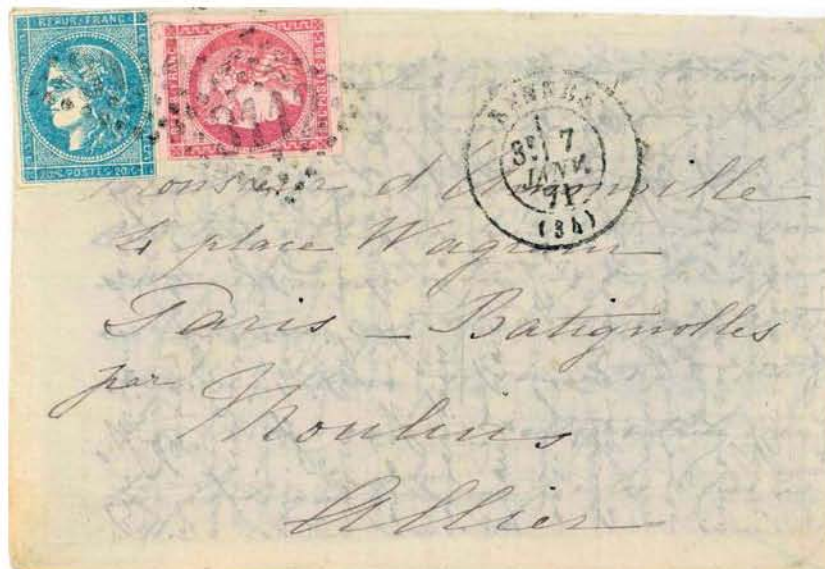 REPUB. FRANC.
20c POSTES 20c
RENNES
3E 7
JANV.
71
(34)
Monsieur d'
4 place Wagram
Paris _ Batignolles
par
Moulins
Allier